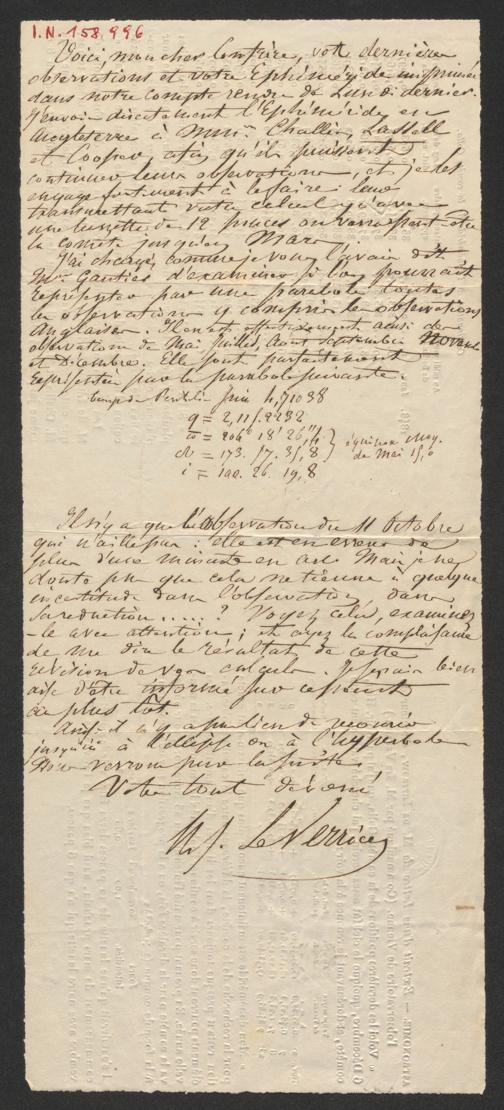 I.N. 158.996
Voici, mon cher Confrère, votre dernière
observations et votre Ephéméride imprimées
dans notre compte rendu de Lundi dernier.
J'envoie directement l'Ephéméride en
Angleterre à MMrs Challis, Lassell
et Cooper, afin qu'ils puissent
continuer leurs observations, et je les
engage fortement à le faire: leur
transmettant votre calcul qu'avec
une lunette de 12 pouces on verra peut-être
la comète jusqu'en Mars.
J'ai chargé, comme je vous l'avais dit
Mr Gautier d'examiner si l'on pourrait
représenter par une parabole toutes
les observations y compris les observations
Anglaises. Il en est effectivement ainsi des
observations de Mai Juillet, Août Septembre Novembre
et Décembre. Elles sont parfaitement
représentées par la parabole suivante.
temps du Périhélie Juin 4,71038
q = 2,115.9232
ϖ = 206° 18' 26",
☊ = 173. 57. 35,8 } équinoxe moy. de Mai 15,0
i = 100. 26. 19,8
Il n'y a que l'observation du 11 Octobre
qui n'aille pas: elle est en erreur de
plus d'une minute en arc. Mais je ne
doute pas que cela ne tienne à quelque
incertitude dans l'observation, dans
sa réduction.....? Voyez cela, examinez
-le avec attention; et ayez la complaisance
de me dire le résultat de cette
révision de vos calculs. Je serais bien
aise d'être informé sur ce point
au plus tôt.
Ainsi il n'y a pas lieu de recourir
jusqu'ici à l'ellipse ou à l'hyperbole
Nous verrons pour la suite.
Votre tout dévoué
U. J. Le Verrier